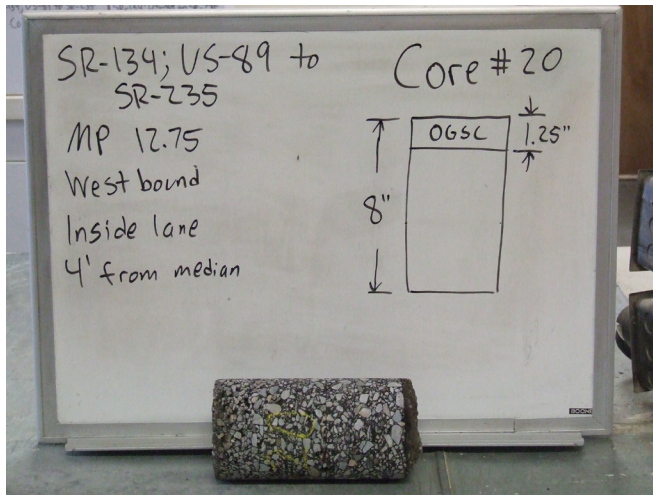 SR-134; US-89 to
SR-235
MP 12.75
Westbound
Inside lane
4' from median
Core #20
OGSC
1.25"
8"
BOONE
20